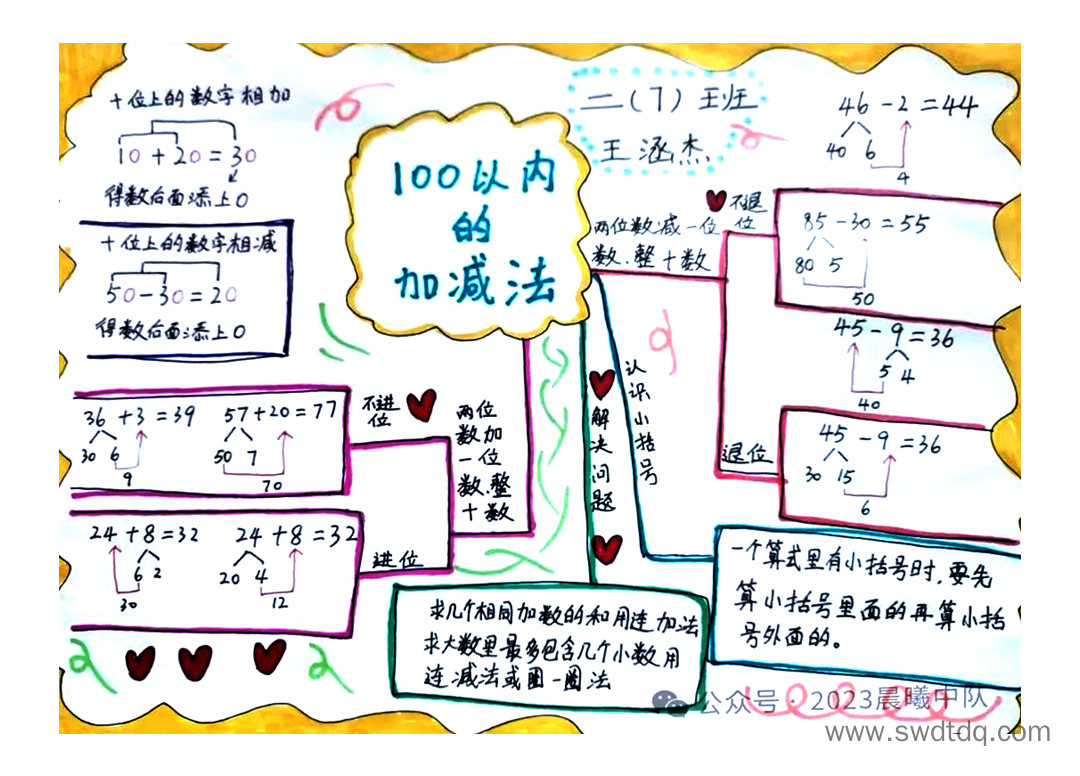 十位上的数字相加
10+20=30
得数后面添上0
十位上的数字相减
50-30=20
得数后面添上0
100以内
的
加减法
二(7)班
王涵杰
46-2=44
40 6
4
两位数减一位
数、整十数
不退
位
85-30=55
80 5
50
45-9=36
5 4
40
退位
45-9=36
30 15
6
36+3=39
30 6
9
57+20=77
50 7
70
不进
位
24+8=32
6 2
30
24+8=32
20 4
12
进位
两位
数加
一位
数、整
十数
解决问题
认识小括号
求几个相同加数的和用连加法
求大数里最多包含几个小数用
连减法或圈一圈法
一个算式里有小括号时,要先
算小括号里面的再算小括
号外面的。
公众号·2023晨曦中队
www.swdtdq.com